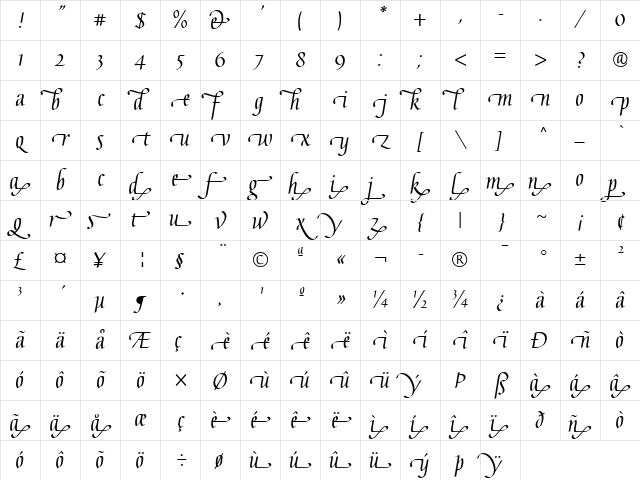 ! " # $ % & ' ( ) * + , - . / 0
1 2 3 4 5 6 7 8 9 : ; < = > ? @
a b c d e f g h i j k l m n o p
q r s t u v w x y z [ \ ] ^ _ `
a b c d e f g h i j k l m n o p
q r s t u v w x y z { | } ~ ¡ ¢
£ ¤ ¥ ¦ § ¨ © ª « ¬ - ® ¯ ° ± ²
³ ´ µ ¶ · ¸ ¹ º » ¼ ½ ¾ ¿ à á â
ã ä å Æ ç è é ê ë ì í î ï Ð ñ ò
ó ô õ ö × Ø ù ú û ü ý Þ ß à á â
ã ä å æ ç è é ê ë ì í î ï ð ñ ò
ó ô õ ö ÷ ø ù ú û ü ý þ ÿ